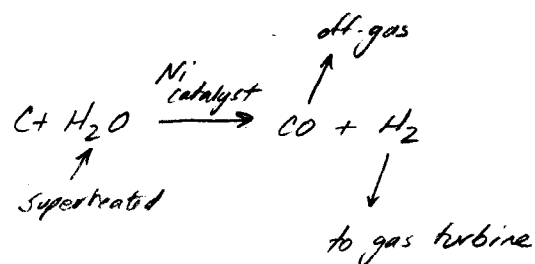 off-gas
Ni
catalyst
C + H₂O ⟶ CO + H₂
superheated
to gas turbine